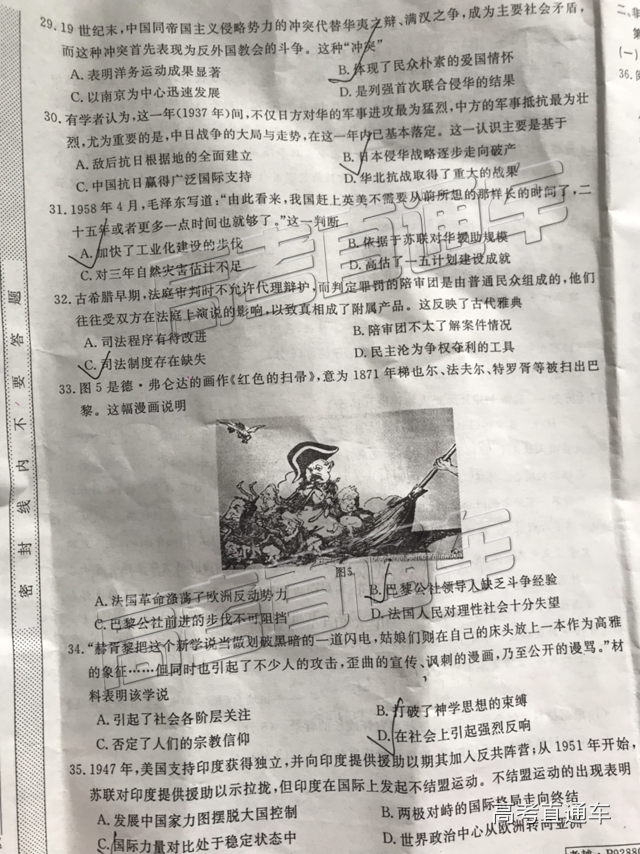 29. 19世纪末，中国同帝国主义侵略势力的冲突代替华夷之辩、满汉之争，成为主要社会矛盾，
而这种冲突首先表现为反外国教会的斗争。这种“冲突”
A. 表明洋务运动成果显著
B. 体现了民众朴素的爱国情怀
C. 以南京为中心迅速发展
D. 是列强首次联合侵华的结果
30. 有学者认为，这一年(1937年)间，不仅日方对华的军事进攻最为猛烈，中方的军事抵抗最为壮
烈，尤为重要的是，中日战争的大局与走势，在这一年内已基本落定。这一认识主要是基于
A. 敌后抗日根据地的全面建立
B. 日本侵华战略逐步走向破产
C. 中国抗日赢得广泛国际支持
D. 华北抗战取得了重大的战果
31. 1958年4月，毛泽东写道：“由此看来，我国赶上英美不需要从前所想的那样长的时间了，二
十五年或者更多一点时间也就够了。”这一判断
A. 加快了工业化建设的步伐
B. 依据于苏联对华援助规模
C. 对三年自然灾害估计不足
D. 高估了一五计划建设成就
32. 古希腊早期，法庭审判时不允许代理辩护，而判定罪罚的陪审团是由普通民众组成的，他们
往往受双方在法庭上演说的影响，以致真相成了附属产品。这反映了古代雅典
A. 司法程序有待改进
B. 陪审团不太了解案件情况
C. 司法制度存在缺失
D. 民主沦为争权夺利的工具
33. 图5是德·弗仑达的画作《红色的扫帚》，意为1871年梯也尔、法夫尔、特罗胥等被扫出巴
黎。这幅漫画说明
图5
A. 法国革命涤荡了欧洲反动势力
B. 巴黎公社领导人缺乏斗争经验
C. 巴黎公社前进的步伐不可阻挡
D. 法国人民对理性社会十分失望
34. “赫胥黎把这个新学说当做划破黑暗的一道闪电，姑娘们则在自己的床头放上一本作为高雅
的象征……但同时也引起了不少人的攻击，歪曲的宣传、讽刺的漫画，乃至公开的谩骂。”材
料表明该学说
A. 引起了社会各阶层关注
B. 打破了神学思想的束缚
C. 否定了人们的宗教信仰
D. 在社会上引起强烈反响
35. 1947年，美国支持印度获得独立，并向印度提供援助以期其加入反共阵营；从1951年开始，
苏联对印度提供援助以示拉拢，但印度在国际上发起不结盟运动。不结盟运动的出现表明
A. 发展中国家力图摆脱大国控制
B. 两极对峙的国际格局走向终结
C. 国际力量对比处于稳定状态中
D. 世界政治中心从欧洲转向亚洲
密封线内不要答题
二、非
第
(一)
36.
高考直通车
高考直通车
高考直通车